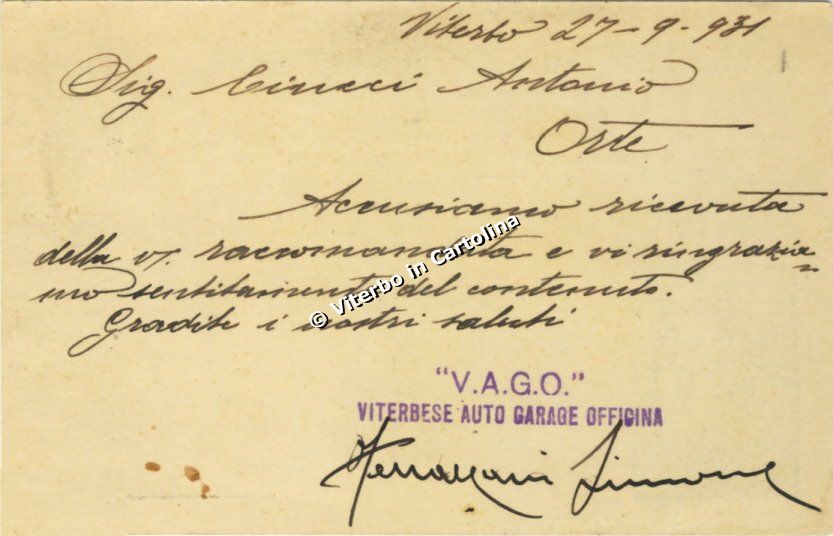 Viterbo 27-9-931
Sig. Ciucci Antonio
Orte
Accusiamo ricevuta
della vs. raccomandata e vi ringrazia-
mo sentitamente del contenuto.
Gradite i nostri saluti
© Viterbo in Cartolina
"V.A.G.O."
VITERBESE AUTO GARAGE OFFICINA
Simone